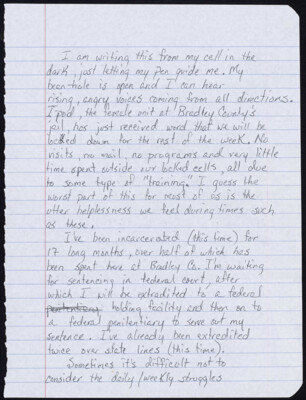 I am writing this from my cell in the
dark, just letting my pen guide me. My
bean-hole is open and I can hear
rising, angry voices coming from all directions.
I pod, the female unit at Bradley County's
jail, has just received word that we will be
locked down for the rest of the week. No
visits, no mail, no programs and very little
time spent outside our locked cells, all due
to some type of "training." I guess the
worst part of this for most of us is the
utter helplessness we feel during times such
as these.
I've been incarcerated (this time) for
17 long months, over half of which has
been spent here at Bradley Co. I'm waiting
for sentencing in federal court, after
which I will be extradited to a federal
holding facility and then on to
a federal penitentiary to serve out my
sentence. I've already been extradited
twice over state lines (this time).
Sometimes it's difficult not to
consider the daily/weekly struggles